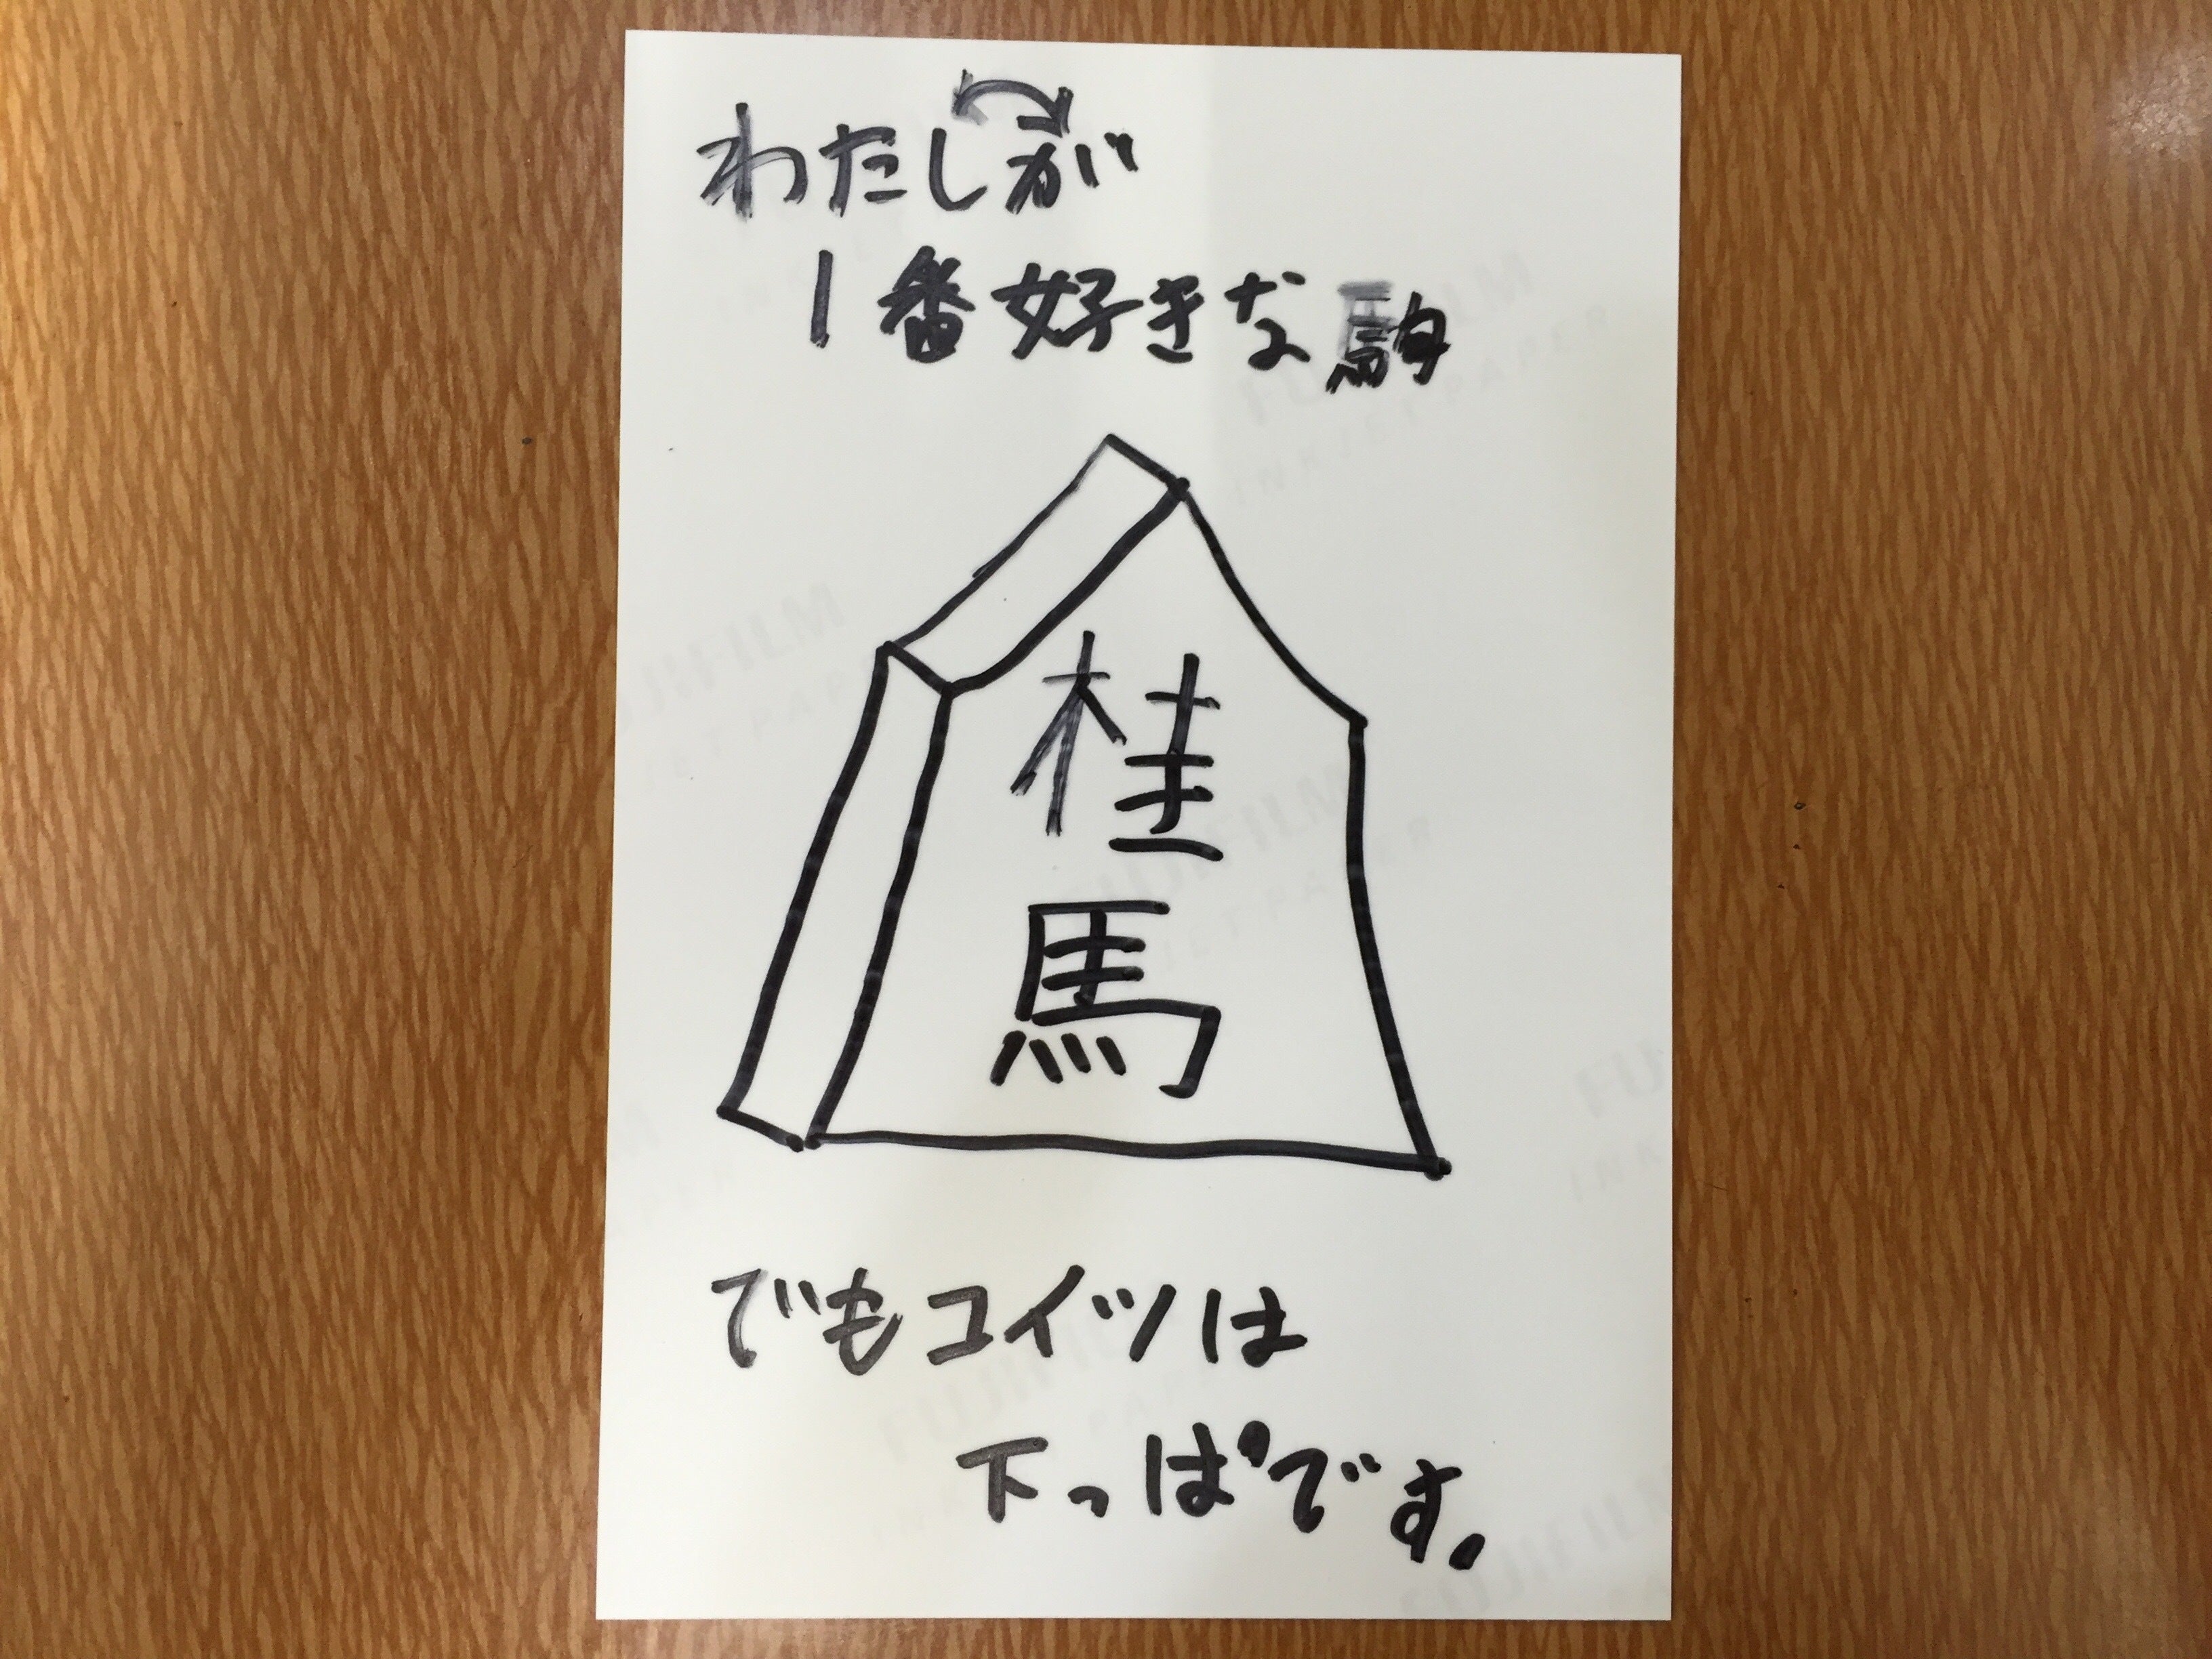 わたしが
1番好きな駒
桂
馬
でもコイツは
下っぱです。